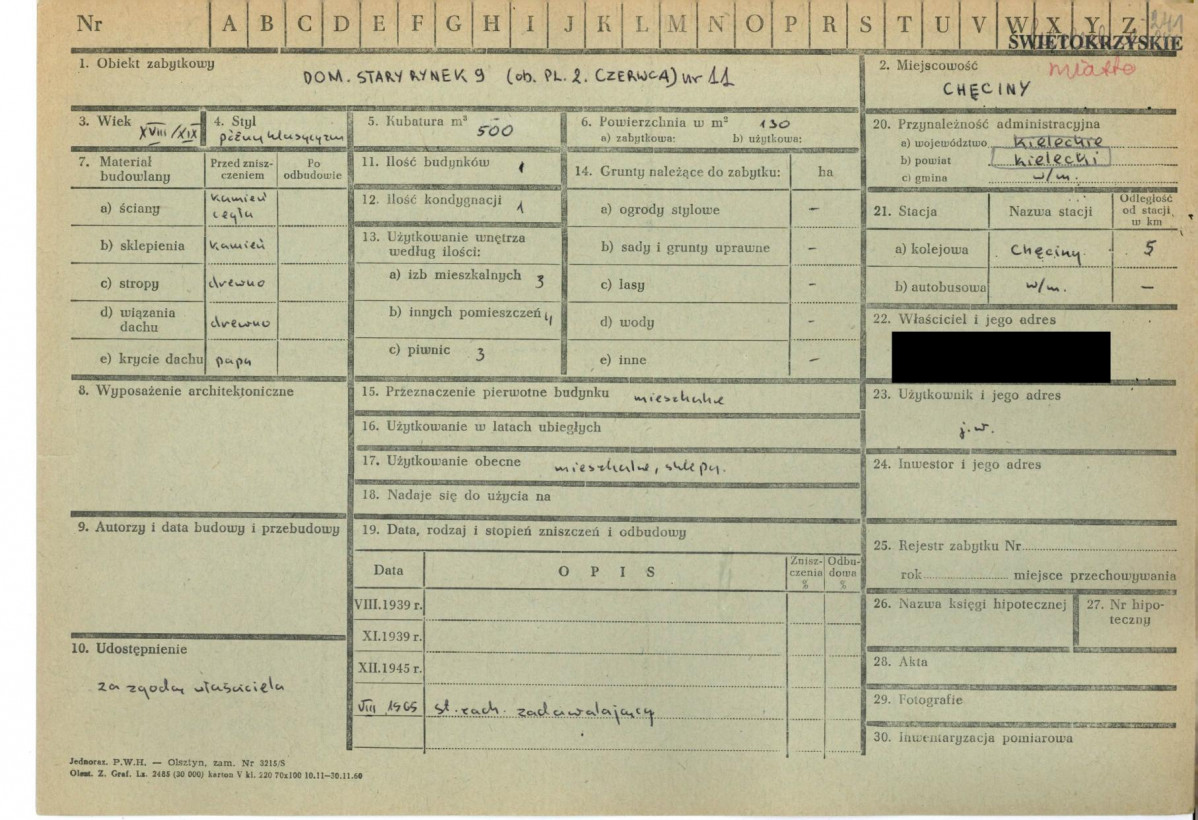 Nr A B C D E F G H I J K L M N O P R S T U V W X Y Z 241
ŚWIĘTOKRZYSKIE
1. Obiekt zabytkowy
DOM. STARY RYNEK 9 (ob. PL. 2. CZERWCA) nr 11
2. Miejscowość
miasto
CHĘCINY
3. Wiek
XVIII/XIX
4. Styl
późny klasycyzm
5. Kubatura m³
500
6. Powierzchnia w m² 130
a) zabytkowa: b) użytkowa:
20. Przynależność administracyjna
a) województwo kieleckie
b) powiat kielecki
c) gmina w/m.
7. Materiał budowlany
Przed zniszczeniem
Po odbudowie
a) ściany kamień cegła
b) sklepienia kamień
c) stropy drewno
d) wiązania dachu drewno
e) krycie dachu papa
11. Ilość budynków 1
12. Ilość kondygnacji 1
13. Użytkowanie wnętrza
według ilości:
a) izb mieszkalnych 3
b) innych pomieszczeń 4
c) piwnic 3
14. Grunty należące do zabytku: ha
a) ogrody stylowe –
b) sady i grunty uprawne –
c) lasy –
d) wody –
e) inne –
21. Stacja Nazwa stacji Odległość od stacji w km
a) kolejowa Chęciny 5
b) autobusowa w/m. –
22. Właściciel i jego adres
8. Wyposażenie architektoniczne
15. Przeznaczenie pierwotne budynku mieszkalne
16. Użytkowanie w latach ubiegłych
17. Użytkowanie obecne mieszkalne, sklepy.
18. Nadaje się do użycia na
23. Użytkownik i jego adres
j.w.
24. Inwestor i jego adres
9. Autorzy i data budowy i przebudowy
19. Data, rodzaj i stopień zniszczeń i odbudowy
Data O P I S Zniszczenia % Odbudowa %
VIII.1939 r.
XI.1939 r.
XII.1945 r.
VIII 1965 st. zach. zadawalający
25. Rejestr zabytku Nr
rok miejsce przechowywania
26. Nazwa księgi hipotecznej
27. Nr hipoteczny
28. Akta
29. Fotografie
30. Inwentaryzacja pomiarowa
10. Udostępnienie
za zgodą właściciela
Jednoraz. P.W.H. — Olsztyn, zam. Nr 3215/S
Olszt. Z. Graf. Lz. 2485 (30 000) karton V kl. 220 70x100 10.11—30.11.60